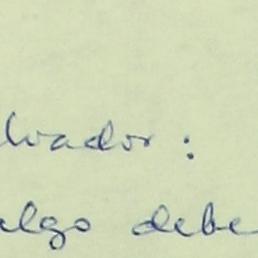 lvador:
algo debe